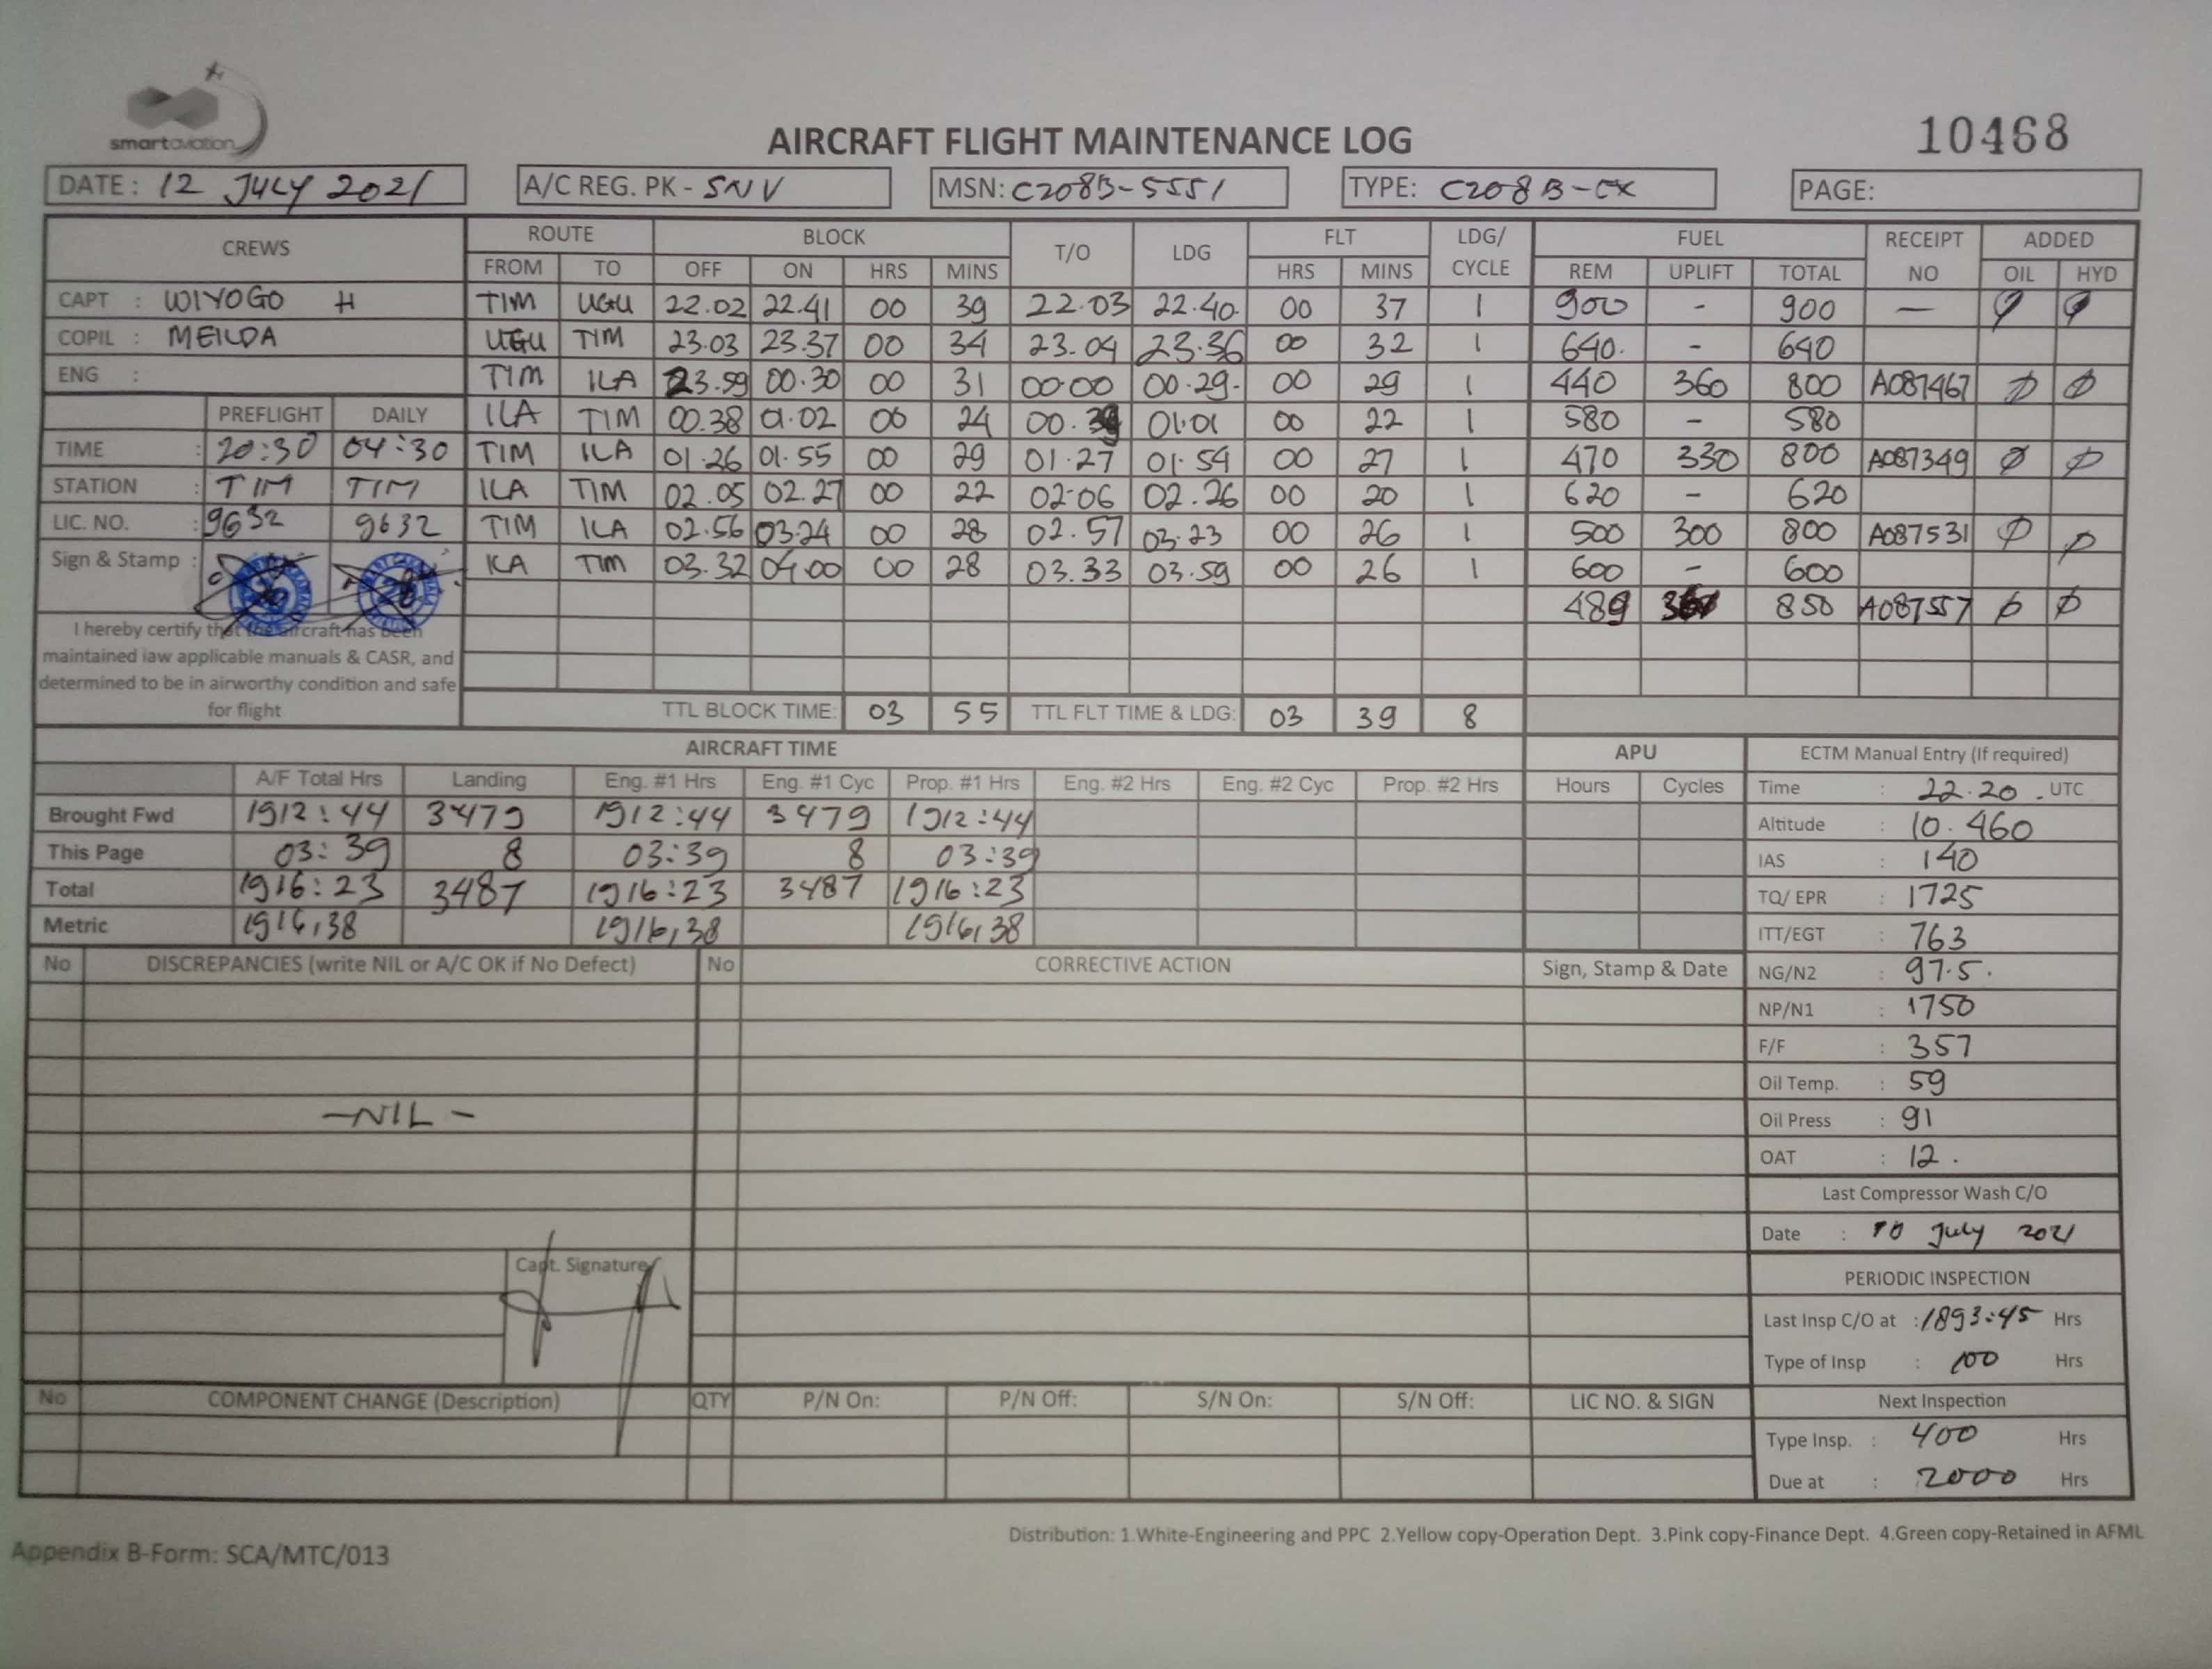 smartaviation
AIRCRAFT FLIGHT MAINTENANCE LOG
10468
DATE : 12 JULY 2021 A/C REG. PK - SNV MSN: C208B-5551 TYPE: C208B-EX PAGE:
CREWS ROUTE BLOCK T/O LDG FLT LDG/ CYCLE FUEL RECEIPT NO ADDED
FROM TO OFF ON HRS MINS HRS MINS REM UPLIFT TOTAL OIL HYD
CAPT : WIYOGO H TIM UGU 22.02 22.41 00 39 22.03 22.40. 00 37 1 900 - 900 — φ φ
COPIL : MEILDA UGU TIM 23.03 23.37 00 34 23.04 23.36 00 32 1 640. - 640
ENG : TIM ILA 23.59 00.30 00 31 00.00 00.29- 00 29 1 440 360 800 A087467 φ φ
PREFLIGHT DAILY ILA TIM 00.38 01.02 00 24 00. 01.01 00 22 1 580 - 580
TIME : 20:30 04:30 TIM ILA 01.26 01.55 00 29 01.27 01.54 00 27 1 470 330 800 A087349 φ φ
STATION : TIM TIM ILA TIM 02.05 02.27 00 22 02.06 02.26 00 20 1 620 - 620
LIC. NO. : 9632 9632 TIM ILA 02.56 03.24 00 28 02.57 03.23 00 26 1 500 300 800 A087531 φ φ
Sign & Stamp : ILA TIM 03.32 04.00 00 28 03.33 03.59 00 26 1 600 - 600
489 850 A087557 φ φ
I hereby certify that the aircraft has been
maintained iaw applicable manuals & CASR, and
determined to be in airworthy condition and safe
for flight
TTL BLOCK TIME: 03 55 TTL FLT TIME & LDG: 03 39 8
AIRCRAFT TIME APU ECTM Manual Entry (If required)
A/F Total Hrs Landing Eng. #1 Hrs Eng. #1 Cyc Prop. #1 Hrs Eng. #2 Hrs Eng. #2 Cyc Prop. #2 Hrs Hours Cycles Time : 22.20 . UTC
Brought Fwd 1912:44 3479 1912:44 3479 1912:44 Altitude : 10.460
This Page 03:39 8 03:39 8 03:39 IAS : 140
Total 1916:23 3487 1916:23 3487 1916:23 TQ/ EPR : 1725
Metric 1916,38 1916,38 1916,38 ITT/EGT : 763
No DISCREPANCIES (write NIL or A/C OK if No Defect) No CORRECTIVE ACTION Sign, Stamp & Date NG/N2 : 97.5.
NP/N1 : 1750
F/F : 357
Oil Temp. : 59
-NIL- Oil Press : 91
OAT : 12.
Last Compressor Wash C/O
Date : 10 July 2021
Capt. Signature
PERIODIC INSPECTION
Last Insp C/O at : 1893:45 Hrs
Type of Insp : 100 Hrs
No COMPONENT CHANGE (Description) QTY P/N On: P/N Off: S/N On: S/N Off: LIC NO. & SIGN Next Inspection
Type Insp. : 400 Hrs
Due at : 2000 Hrs
Distribution: 1.White-Engineering and PPC 2.Yellow copy-Operation Dept. 3.Pink copy-Finance Dept. 4.Green copy-Retained in AFML
Appendix B-Form: SCA/MTC/013